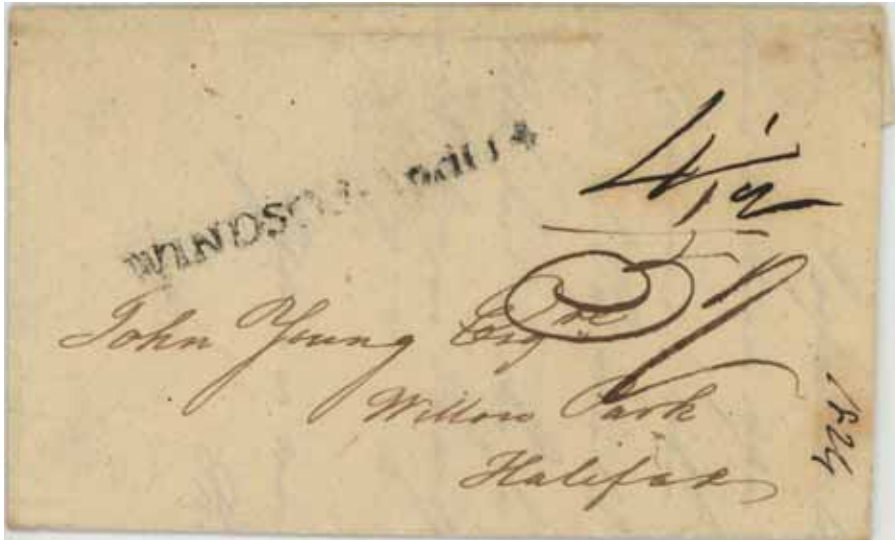 WINDSOR
4 1/2
John Young Esqre
Willow Park
Halifax
1824